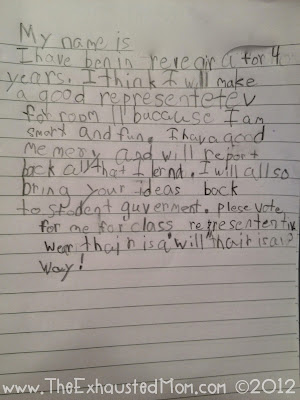 My name is
I have benin reveira for 4
years. I think I will make
a good representetev
for room 11 bucause I am
smart and fun. I hava good
memery and will report
back all that I lernd. I will allso
bring your ideas back
to student guverment. plese vote
for me for class represententiv
wear thair is a will thair is a
way!
www.TheExhaustedMom.com ©2012